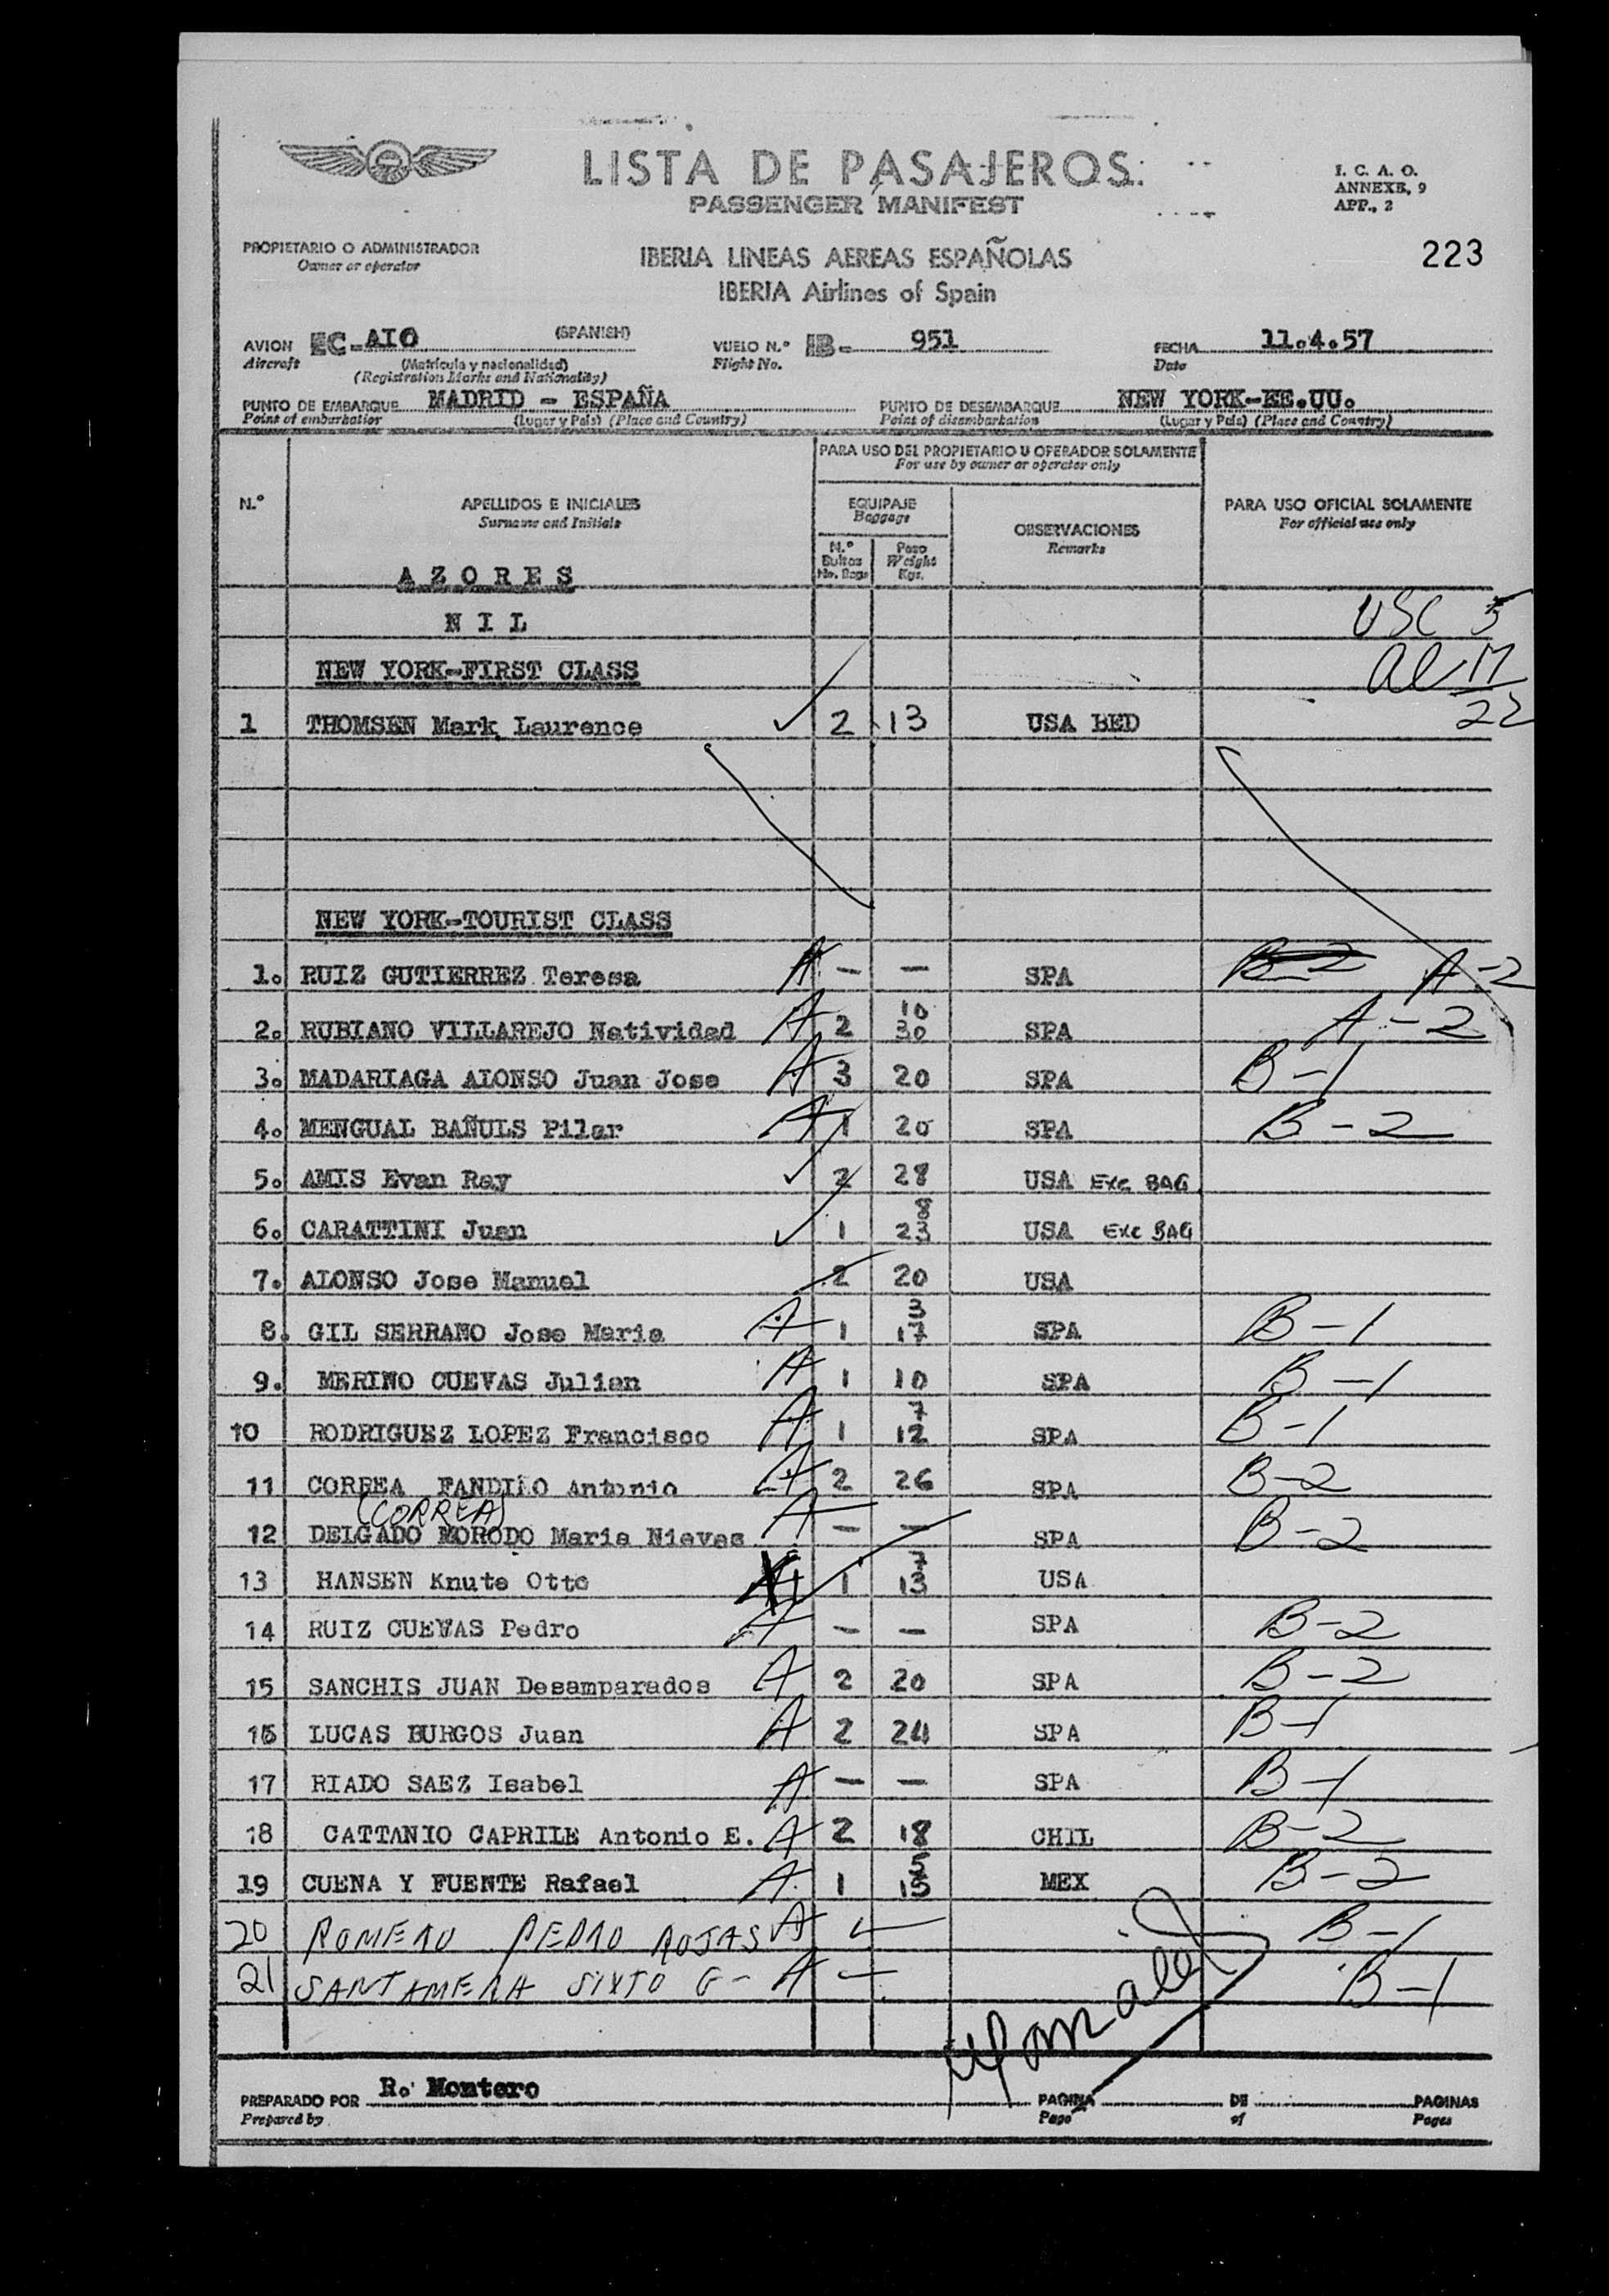 LISTA DE PASAJEROS.
PASSENGER MANIFEST
I. C. A. O.
ANNEXE, 9
APP., 2
223
PROPIETARIO O ADMINISTRADOR
Owner or operator
IBERIA LINEAS AEREAS ESPAÑOLAS
IBERIA Airlines of Spain
AVION EC-AIO (SPANISH) VUELO N.º IB- 951 FECHA 11.4.57
Aircraft (Matrícula y nacionalidad) Flight No. Date
(Registration Marks and Nationality)
PUNTO DE EMBARQUE MADRID - ESPAÑA PUNTO DE DESEMBARQUE NEW YORK-EE.UU.
Point of embarkation (Lugar y País) (Place and Country) Point of disembarkation (Lugar y País) (Place and Country)
PARA USO DEL PROPIETARIO U OPERADOR SOLAMENTE
For use by owner or operator only
N.º APELLIDOS E INICIALES EQUIPAJE OBSERVACIONES PARA USO OFICIAL SOLAMENTE
Surname and Initials Baggage Remarks For official use only
N.º Bultos Peso
No. Bags Weight Kgs.
AZORES
NIL USC 5
NEW YORK-FIRST CLASS al 17
22
1 THOMSEN Mark Laurence 2 13 USA BED
NEW YORK-TOURIST CLASS
1. RUIZ GUTIERREZ Teresa A - - SPA B-2 A-2
2. RUBIANO VILLAREJO Natividad A 2 10 30 SPA A-2
3. MADARIAGA ALONSO Juan Jose A 3 20 SPA B-1
4. MENGUAL BAÑULS Pilar A 1 20 SPA B-2
5. AMIS Evan Ray 2 28 USA EXC BAG
6. CARATTINI Juan 1 8 23 USA EXC BAG
7. ALONSO Jose Manuel 2 20 USA
8. GIL SERRANO Jose Maria A 1 3 17 SPA B-1
9. MERINO CUEVAS Julian A 1 10 SPA B-1
10 RODRIGUEZ LOPEZ Francisco A 1 7 12 SPA B-1
11 CORREA FANDIÑO Antonio A 2 26 SPA B-2
(CORREA)
12 DELGADO MORODO Maria Nieves A - - SPA B-2
13 HANSEN Knute Otto 1 7 13 USA
14 RUIZ CUEVAS Pedro A - - SPA B-2
15 SANCHIS JUAN Desamparados A 2 20 SPA B-2
16 LUCAS BURGOS Juan A 2 24 SPA B-1
17 RIADO SAEZ Isabel A - - SPA B-1
18 CATTANIO CAPRILE Antonio E. A 2 18 CHIL B-2
19 CUENA Y FUENTE Rafael A 1 5 15 MEX B-2
20 ROMERO PEDRO ROJAS A - B-1
21 SANTAMERA SIXTO G- A - B-1
PREPARADO POR R. Montero PAGINA DE PAGINAS
Prepared by Page of Pages